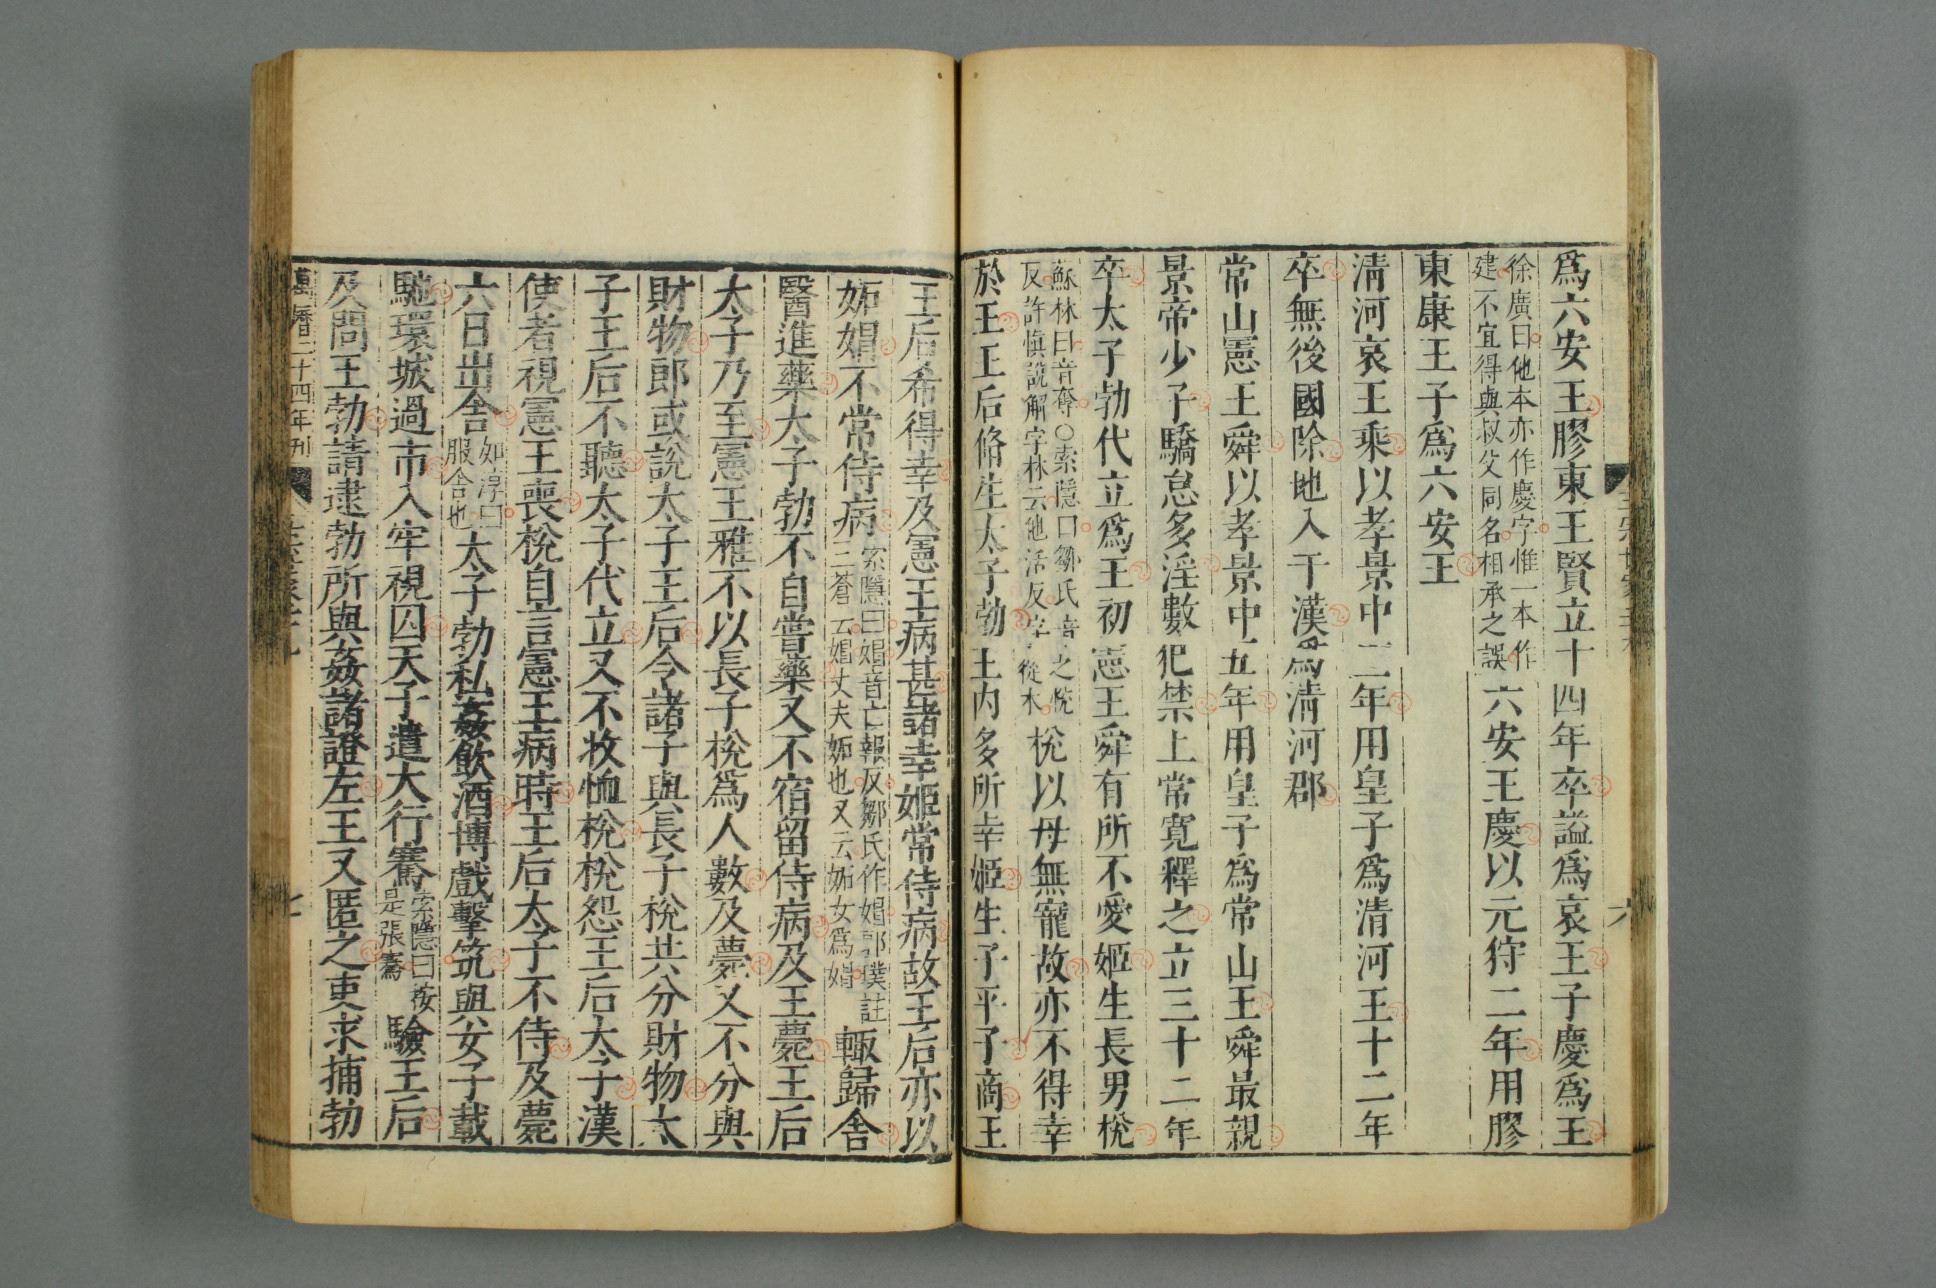 為六安王膠東王賢立十四年卒謚為哀王子慶為王
徐廣曰他本亦作慶字惟一本作
建不宜得與叔父同名相承之誤
六安王慶以元狩二年用膠
東康王子為六安王
清河哀王乘以孝景中三年用皇子為清河王十二年
卒無後國除地入于漢為清河郡
常山憲王舜以孝景中五年用皇子為常山王舜最親
景帝少子驕怠多淫數犯禁上常寬釋之立三十二年
卒太子勃代立為王初憲王舜有所不愛姬生長男梲
蘇林曰音奪○索隱曰鄒氏音之悅
反許慎說解字林云他活反字從木
梲以母無寵故亦不得幸
於王王后脩生太子勃王內多所幸姬生子平子商王
王后希得幸及憲王病甚諸幸姬常侍病故王后亦以
妬媢不常侍病
索隱曰媢音亡報反鄒氏作媢郭璞註
三蒼云媢丈夫妬也又云妬女為媢
輙歸舍
醫進藥太子勃不自嘗藥又不宿留侍病及王薨王后
太子乃至憲王雅不以長子梲為人數及薨又不分與
財物郎或說太子王后令諸子與長子梲共分財物太
子王后不聽太子代立又不收恤梲梲怨王后太子漢
使者視憲王喪梲自言憲王病時王后太子不侍及薨
六日出舍
如淳曰
服舍也
太子勃私姦飲酒博戲擊筑與女子載
馳環城過市入牢視囚天子遣大行騫
索隱曰按
是張騫
驗王后
及問王勃請逮勃所與姦諸證左王又匿之吏求捕勃
萬曆二十四年刊
七